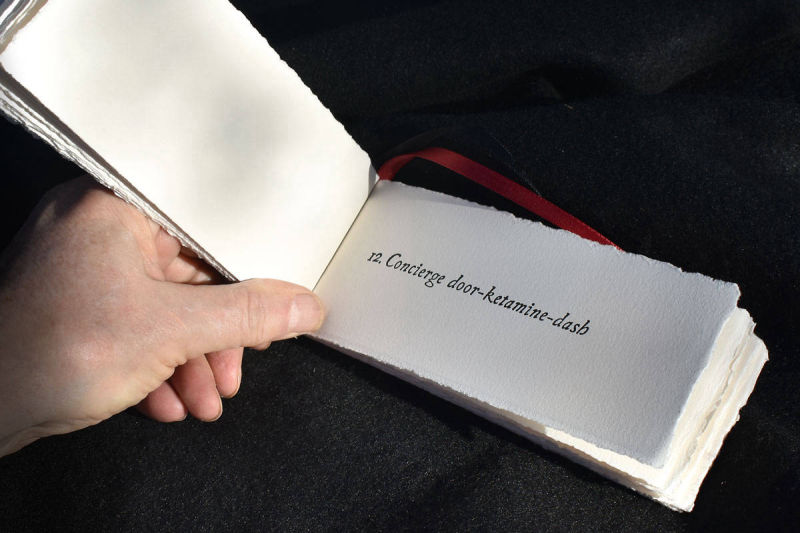 12. Concierge door-ketamine-dash